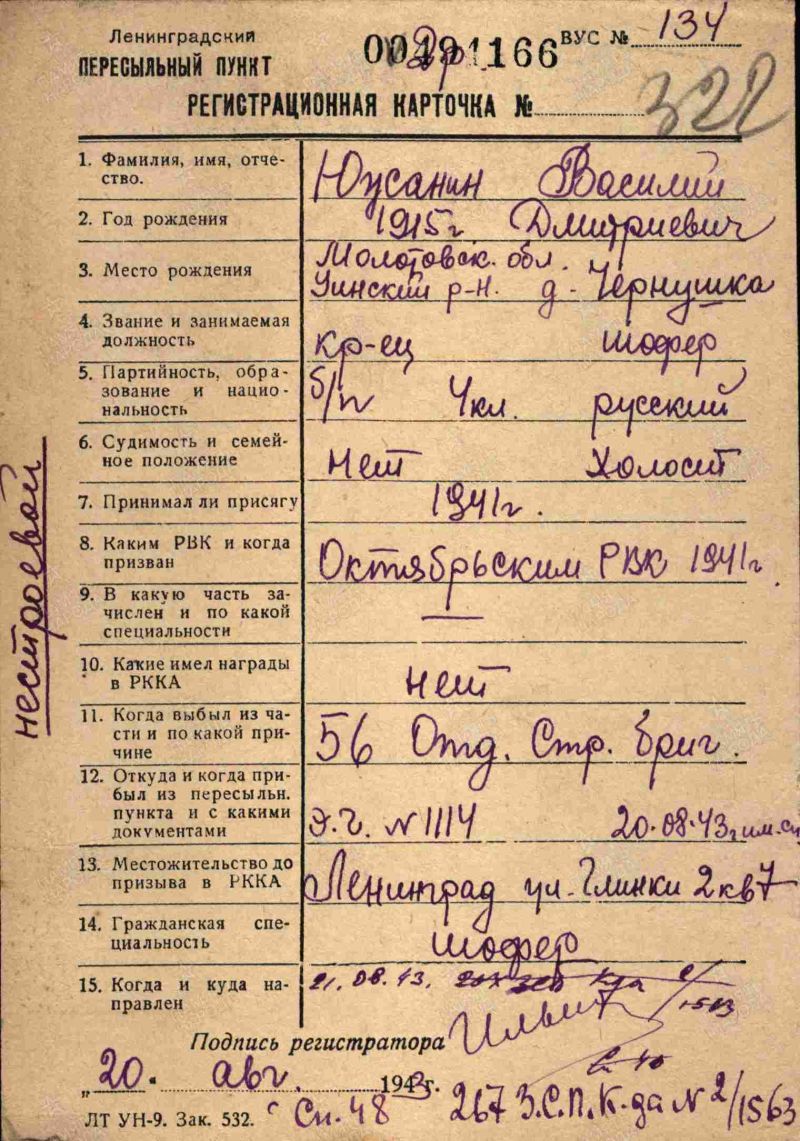 Ленинградский
ПЕРЕСЫЛЬНЫЙ ПУНКТ
ВУС № 134
РЕГИСТРАЦИОННАЯ КАРТОЧКА № 322
1. Фамилия, имя, отче-
ство.
Юусанин Василий
2. Год рождения
1915г Дмитриевич
3. Место рождения
Молотовск. обл.
Уинский р-н. д-Чернушка
4. Звание и занимаемая
должность
кр-ец шофер
5. Партийность, обра-
зование и нацио-
нальность
б/п 4кл. русский
6. Судимость и семей-
ное положение
Нет Холост
7. Принимал ли присягу
1941г.
8. Каким РВК и когда
призван
Октябрьским РВК 1941г.
9. В какую часть за-
числен и по какой
специальности
—
10. Какие имел награды
в РККА
нет
11. Когда выбыл из ча-
сти и по какой при-
чине
56 Отд. Стр. бриг.
12. Откуда и когда при-
был из пересыльн.
пункта и с какими
документами
Э.Г. N 1114 20.08.43г им.сп
13. Местожительство до
призыва в РККА
Ленинград ул. Глинки 2 кв 7
14. Гражданская спе-
циальность
шофер
15. Когда и куда на-
правлен
21.08.43.
Подпись регистратора
„20. авг. 1943г.
ЛТ УН-9. Зак. 532.
Сп. 48 267 З.С.П. К-да N 2/1563
нестроевой